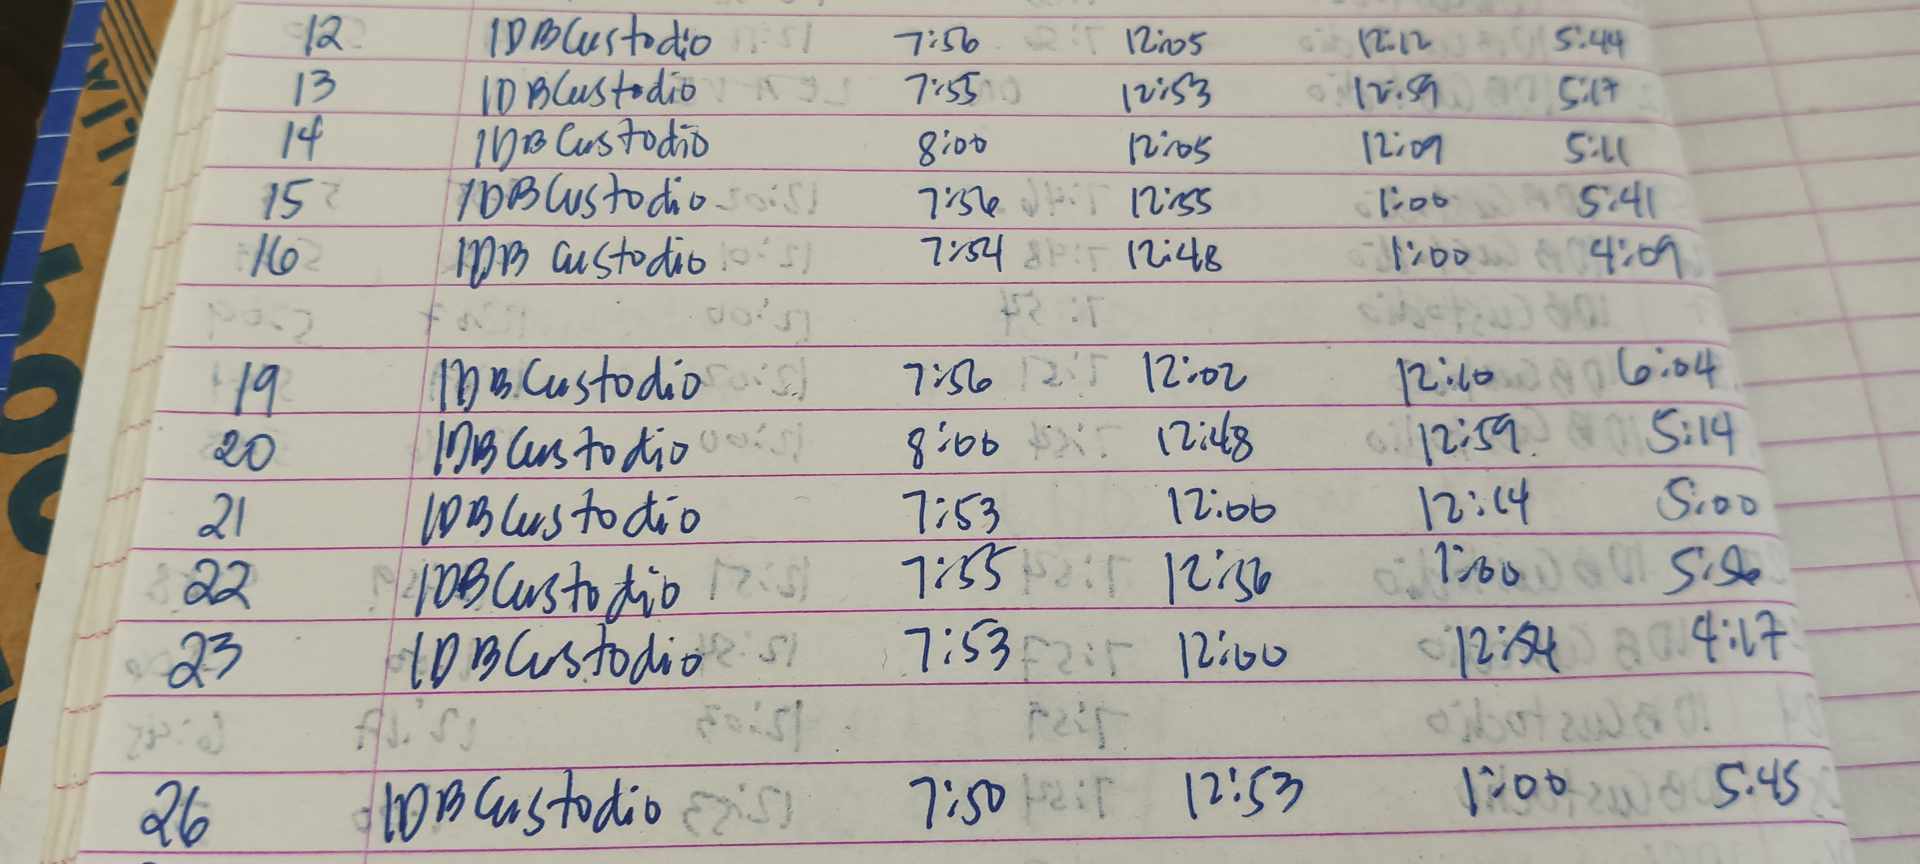 12 IDBCustodio 7:56 12:05 12:12 5:44
13 IDBCustodio 7:55 12:53 12:59 5:17
14 IDBCustodio 8:00 12:05 12:09 5:11
15 IDBCustodio 7:56 12:55 1:00 5:41
16 IDB Custodio 7:54 12:48 1:00 4:09
19 IDBCustodio 7:56 12:02 12:10 6:04
20 IDBCustodio 8:00 12:48 12:59 5:14
21 IDBCustodio 7:53 12:00 12:14 5:00
22 IDBCustodio 7:55 12:56 1:00 5:56
23 IDBCustodio 7:53 12:00 12:54 4:17
26 IDBCustodio 7:50 12:53 1:00 5:45